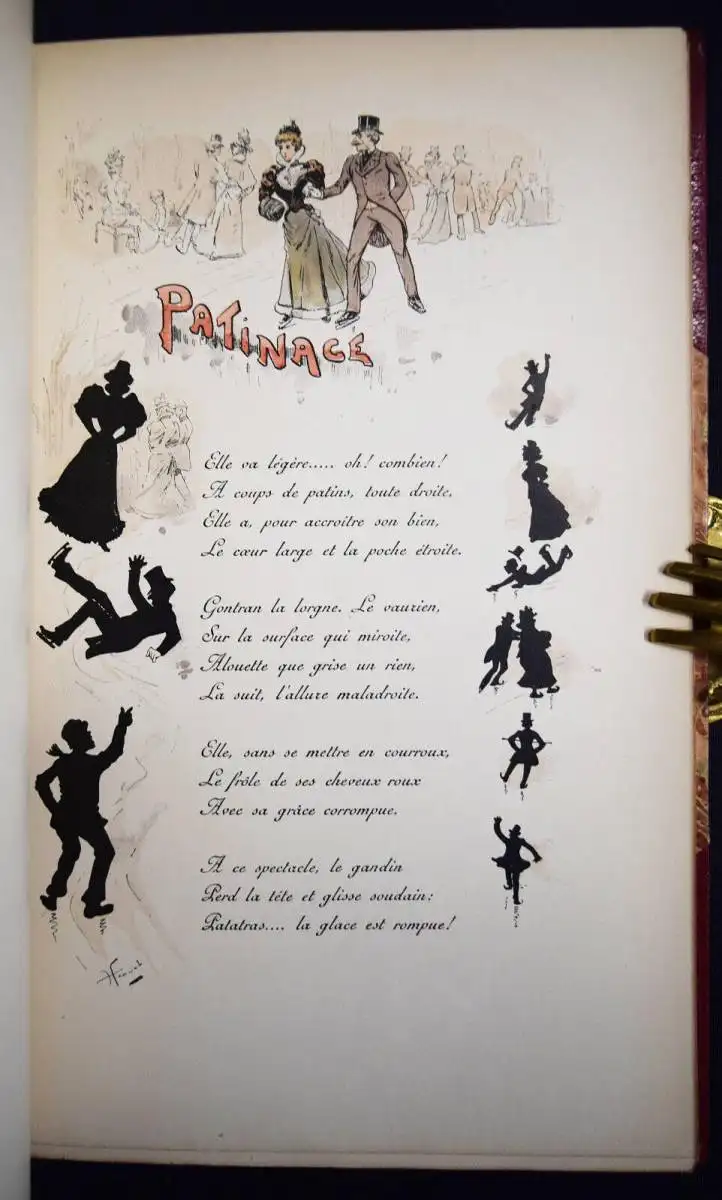 PATINAGE
Elle va légère..... oh! combien!
A coups de patins, toute droite,
Elle a, pour accroitre son bien,
Le cœur large et la poche étroite.
Gontran la lorgne. Le vaurien,
Sur la surface qui miroite,
Alouette que grise un rien,
La suit, l'allure maladroite.
Elle, sans se mettre en courroux,
Le frôle de ses cheveux roux
Avec sa grâce corrompue.
A ce spectacle, le gandin
Perd la tête et glisse soudain:
Patatras.... la glace est rompue!